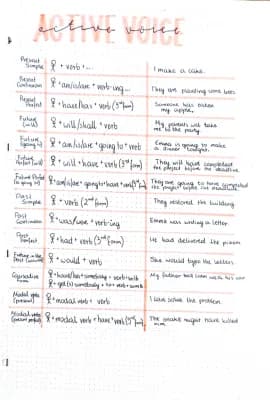 ACTIVE VOICE
active voice
Present Simple + verb +... I make a cake.
Present Continuous + am/is/are + verb-ing... They are planting some trees.
Present Perfect + have/has + verb (3rd form) Someone has eaten my apple.
Future (will) + will/shall + verb My parents will take me to the party.
Future (going to) + am/is/are + going to + verb Emma is going to make a dinner tonight.
Future Perfect (will) + will + have + verb (3rd form) They will have completed the project before the deadline.
Future Perfect (be going to) + am/is/are + going to + have + verb (3rd form) They are going to have completed the project before the deadline.
Past Simple + verb (2nd form) They restored the building.
Past Continuous + was/were + verb-ing was writing a letter.
Past Perfect + had + verb (3rd form) He had delivered the
Future in the Past + would + verb She would type the letters.
Causative + have/has + somebody + verb
+ get(s) somebody + to + verb My father
Modal verbs (present) + modal verb + verb I can solve the problem.
Modal verbs (present perfect) + modal verb + have + verb (3rd form) The snake might have killed him.